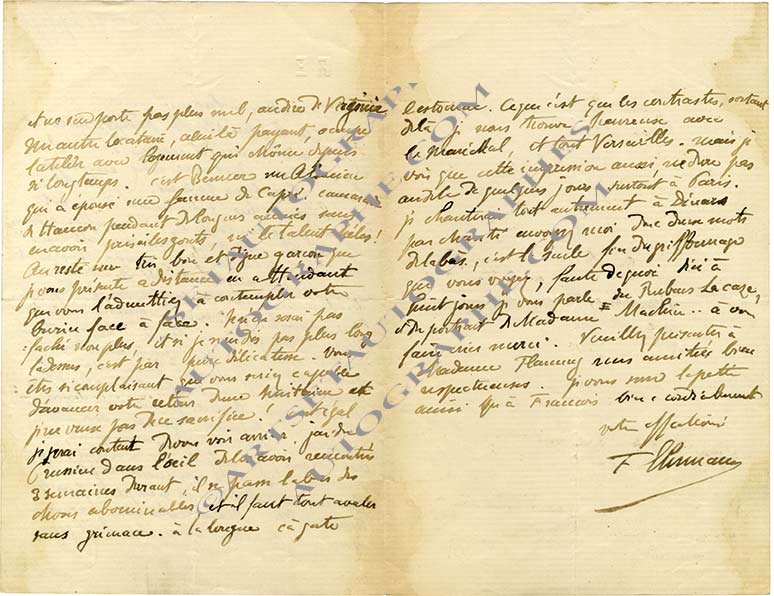 pas plus mal, au dire de Virginie
Un autre locataire, celui là payant, occupe
l'atelier avec logement qui chôme depuis
si longtemps. C'est Benner un Alsacien
qui a épousé une femme de Capri. camarade
d'Hamon pendant de longues années sans
en avoir pris les goûts, ni le talent hélas!
Au reste un très bon et digne garçon que
je vous présente à distance en attendant
que vous l'admettiez à contempler votre
face à face. je n'en serai pas
faché non plus, et si je n'en dis pas plus long
la dessus, c'est par pure délicatesse. Vous
êtes si complaisant que vous seriez capable
d'avancer votre retour d'une huitaine et
je ne veux pas de ce sacrifice! C'est égal
je serai content de vous voir arriver, j'ai du
Prussien dans l'oeil de les avoir rencontrés
3 semaines durant, il se passe là bas des
choses abominables et il faut tout avaler
sans grimace. à la longue ça gate
l'estomac. Ce que c'est que les contrastes, sortant
de là je nous trouve heureuse avec
le Maréchal, et tout Versailles. mais je
vois que cette impression aussi, ne dure pas
au delà de quelques jours surtout à Paris.
je chanterai tout autrement à Dinard
par charité envoyez moi donc deux mots
de là bas, c'est le seule fin du griffonnage
que vous voyez, faute de quoi d'ici à
huit jours je vous parle du Rubens Lacaze,
et du portrait de Madame Machin.. à vous
faire crier merci. Veuillez présenter à
Madame Flameng mes amitiés bien
respectueuses. je vous serre la patte
ainsi qu'à François bien cordialement
votre affectionné
F Ehrmann
©ARTSETAUTOGRAPHES.COM
AUTOGRAPHE.COM